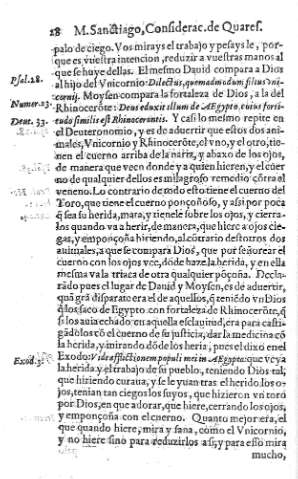 28 M. Sanctiago, Considerac. de Quares.
palo de ciego. Vos mirays el trabajo y pesays le, por-
que es vuestra intencion, reduzir a vuestras manos al
que se huye dellas. El mesmo Dauid compara a Dios
Psal. 28. al hijo del Vnicornio: Dilectus, quemadmodum filius vni-
cornij. Moysen compara la fortaleza de Dios, a la del
Numer. 23. Rhinocerôte: Deus eduxit illum de AEgypto, cuius forti-
Deut. 33. tudo similis est Rhinocerontis. Y casi lo mesmo repite en
el Deuteronomio, y es de aduertir que estos dos ani-
males, Vnicornio y Rhinocerôte, el vno, y el otro, tie-
nen el cuerno arriba de la nariz, y abaxo de los ojos,
de manera que veen donde y a quien hieren, y el cuer
no de qualquier dellos es milagroso remedio côtra el
veneno. Lo contrario de todo esto tiene el cuerno del
Toro, que tiene el cuerno ponçoñoso, y assi por poca
q̃ sea su herida, mata, y tienele sobre los ojos, y cierra-
los quando va a herir, de manera, que hiere a ojos cie-
gas, y emponçoña hiriendo, al côtrario destotros dos
animales, a que se compara Dios, que por señorear el
cuerno con los ojos vee, dôde haze la herida, y en ella
mesma va la triaca de otra qualquier poçoña. Decla-
rado pues el lugar de Dauid y Moysen, es de aduertir,
quã grã disparate era el de aquellos, q̃ teniẽdo vn Dios
q̃ los saco de Egypto con fortaleza de Rhinocerôte, q̃
si los auia echado en aquella esclauitud, era para casti-
gãdolos cô el cuerno de su justicia, dar la medicina cô
la herida, y mirando dôde los hiere, pues el dixo en el
Exod. 3. Exodo: Vidi afflictionem populi mei in AEgypto: que veya
la herida, y el trabajo de su pueblo, teniendo Dios tal,
que hiziendo curaua, y se le yuan tras el herido los o-
jos, tenian tan ciegos los suyos, que hizieron vn toro
por Dios, en que adorar, que hiere, cerrando los ojos,
y emponçoña con el cuerno. Quanto mejor era, el
que quando hiere, mira y sana, como el Vnicornio,
y no hiere sino para reduzirlos a si; y para esso mira
mucho,